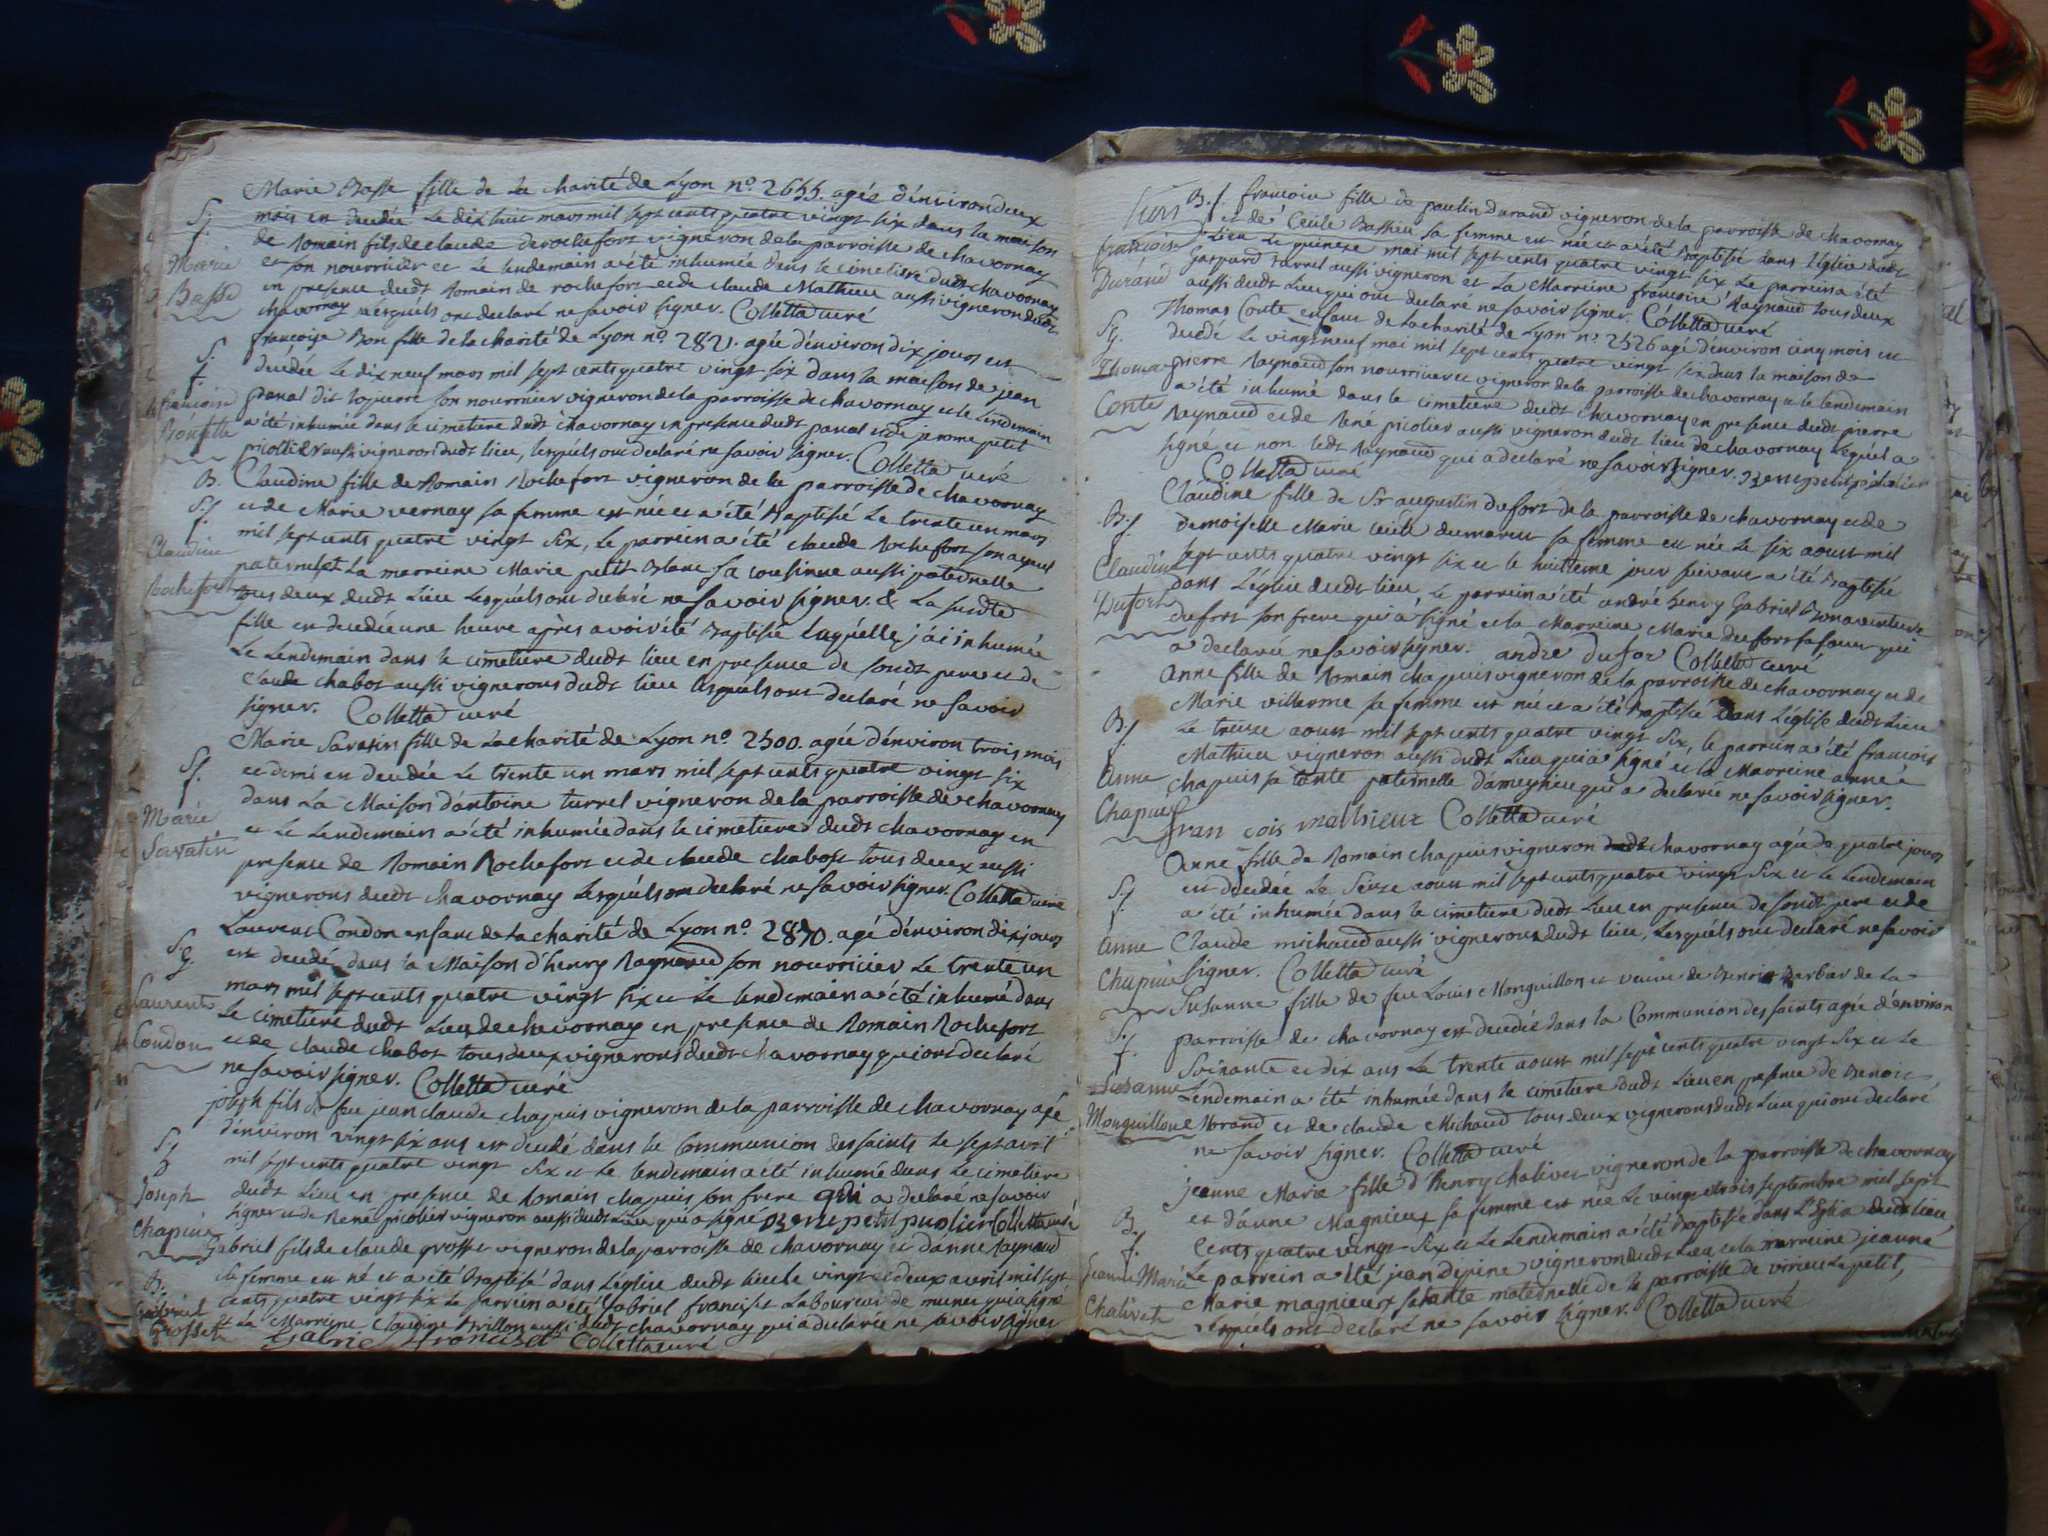 Marie Basse fille de la charité de Lyon n.º 2655. agée d'environ deux
mois est decedée le dix huit mars mil sept cents quatre vingt six dans la maison
de Romain fils de claude de rochefort vigneron de la parroisse de chavornay
et son nourricier et le lendemain a été inhumée dans le cimetiere dudt chavornay
en presence dudt Romain de rochefort et de claude Mathieu aussi vigneron dudt
chavornay lesquels ont declaré ne savoir signer. Colletta curé
S. f.
Marie
Basse
françoise Bon fille de la charité de Lyon n.º 2821. agée d'environ dix jours est
decedée le dix neuf mars mil sept cents quatre vingt six dans la maison de jean
panal dit son nourricier vigneron de la parroisse de chavornay et le lendemain
a été inhumée dans le cimetiere dudt chavornay en presence dudt panal et de jerome petit
picollier aussi vigneron dudt lieu, lesquels ont declaré ne savoir signer. Colletta curé
S. f.
françoise
B. Claudine fille de Romain Rochefort vigneron de la parroisse de chavornay
et de Marie vernay sa femme est née et a été Baptisé le trente un mars
mil sept cents quatre vingt six, le parrein a été claude Rochefort son ayeul
paternel et la marreine Marie petit Blanc sa cousinne aussi paternelle
tous deux dudt lieu lesquels ont declaré ne savoir signer. & La susdte
fille est decedée une heure après avoir été Baptisée laquelle j'ai inhumée
le lendemain dans le cimetiere dudt lieu en presence de soudt pere et de
claude chabot aussi vignerons dudt lieu lesquels ont declaré ne savoir
signer. Colletta curé
S. f.
Claudine
Rochefort
Marie Savatin fille de la charité de Lyon n.º 2500. agée d'environ trois mois
et demi est decedée le trente un mars mil sept cents quatre vingt six
dans la Maison d'antoine turrel vigneron de la parroisse de chavornay
et le lendemain a été inhumée dans le cimetiere dudt chavornay en
presence de Romain Rochefort et de claude chabost tous deux aussi
vignerons dudt chavornay lesquels ont declaré ne savoir signer. Colletta curé
S. f.
Marie
Savatin
Laurent Condon enfant de la charité de Lyon n.º 2870. agé d'environ dix jours
est decedé dans la Maison d'henry Raynaud son nourricier le trente un
mars mil sept cents quatre vingt six et le lendemain a été inhumé dans
le cimetiere dudt lieu de chavornay en presence de Romain Rochefort
et de claude chabot tous deux vignerons dudt chavornay qui ont declaré
ne savoir signer. Colletta curé
S. g.
Laurent
Condon
joseph fils de feu jean claude chapuis vigneron de la parroisse de chavornay agé
d'environ vingt six ans est decedé dans la Communion des saints le sept avril
mil sept cents quatre vingt six et le lendemain a été inhumé dans le cimetiere
dudt lieu en presence de Romain chapuis son frere qui a declaré ne savoir
signer et de René picolier vigneron aussi dudt lieu qui a signé Colletta curé
Joseph
Chapuis
Gabriel fils de claude grosset vigneron de la parroisse de chavornay et d'anne Raynaud
sa femme est né et a été Baptisé dans l'église dudt lieu le vingt et deux avril mil sept
cents quatre vingt six le parrein a été Gabriel franciset laboureur de munet qui a signé
et la Marreine Claudine Brillon aussi dudt chavornay qui a declarée ne savoir signer
Gabriel franciset Colletta curé
B.
Gabriel
Grosset
B. f. françoise fille de paulin durand vigneron de la parroisse de chavornay
et de Cécile Bassieu sa femme est née et a été Baptisée dans l'église dudt
lieu le quinze mai mil sept cents quatre vingt six le parrein a été
Gaspard turrel aussi vigneron et la Marreine françoise Raynaud tous deux
aussi dudt lieu qui ont declaré ne savoir signer. Colletta curé
françoise
Durand
Thomas Conte enfant de la charité de Lyon n.º 2526 agé d'environ cinq mois est
decedé le vingt neuf mai mil sept cents quatre vingt six dans la maison de
pierre Raynaud son nourricier et vigneron de la parroisse de chavornay et le lendemain
a été inhumé dans le cimetiere dudt chavornay en presence dudt pierre
Raynaud et de René picolier aussi vigneron dudt lieu de chavornay lequel a
signé et non ledt Raynaud qui a declaré ne savoir signer.
Colletta curé
S. g.
Thomas
Conte
Claudine fille de Sr augustin dufort de la parroisse de chavornay et de
demoiselle Marie cécile dumarest sa femme est née le six aoust mil
sept cents quatre vingt six et le huitieme jour suivant a été Baptisée
dans l'église dudt lieu le parrein a été andré henry Gabriel Bonaventure
dufort son frere qui a signé et la Marreine Marie dufort sa soeur qui
a declarée ne savoir signer. andre dufor Colletta curé
B. f.
Claudine
Dufort
Anne fille de Romain chapuis vigneron de la parroisse de chavornay et de
Marie villerme sa femme est née et a été Baptisée dans l'église dudt lieu
le treize aoust mil sept cents quatre vingt six, le parrein a été françois
Mathieu vigneron aussi dudt lieu qui a signé et la Marreine anne
chapuis sa tante paternelle d'ameyzieu qui a declarée ne savoir signer.
fran cois mathieux Colletta curé
B. f.
Anne
Chapuis
Anne fille de Romain chapuis vigneron dudt chavornay agée de quatre jours
est decedée le seize aoust mil sept cents quatre vingt six et le lendemain
a été inhumée dans le cimetiere dudt lieu en presence de soudt pere et de
Claude michaud aussi vignerons dudt lieu, lesquels ont declaré ne savoir
signer. Colletta curé
S. f.
Anne
Chapuis
Susanne fille de feu Louis Monguillon et veuve de Benoit Barbar de la
parroisse de chavornay est decedée dans la Communion des saints agée d'environ
soixante et dix ans le trente aoust mil sept cents quatre vingt six et le
lendemain a été inhumée dans le cimetiere dudt lieu en presence de Benoit
Morand et de claude Michaud tous deux vignerons dudt lieu qui ont declaré
ne savoir signer. Colletta curé
S. f.
Susanne
Monguillon
jeanne Marie fille d'henry chalivet vigneron de la parroisse de chavornay
et d'anne Magnieux sa femme est née le vingt trois septembre mil sept
cents quatre vingt six et le lendemain a été Baptisée dans l'Eglise dudt lieu,
le parrein a été jean depine vigneron dudt lieu et la marreine jeanne
Marie magnieux sa tante maternelle de la parroisse de virieu le petit,
lesquels ont declaré ne savoir signer. Colletta curé
B. f.
Jeanne Marie
Chalivet